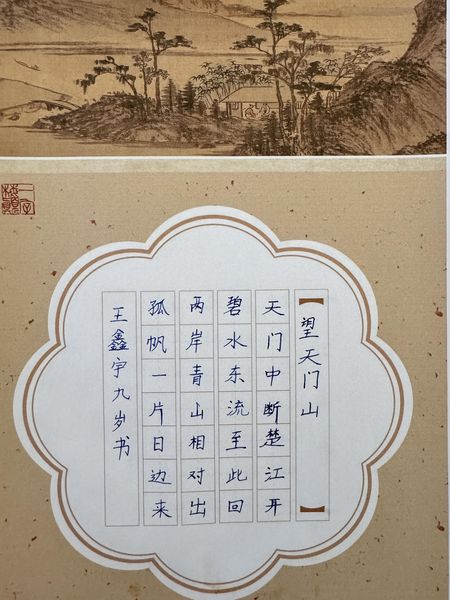 【望天门山】
天门中断楚江开
碧水东流至此回
两岸青山相对出
孤帆一片日边来
王鑫宇九岁书